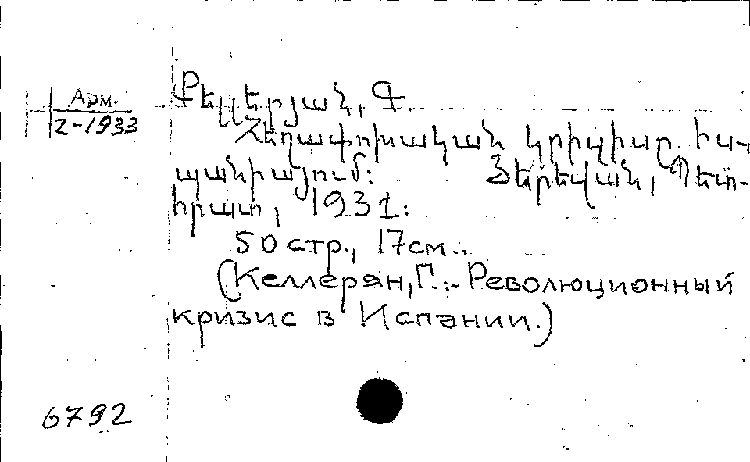 Арм.
2-1933
Քելլերյան, Գ.
Հեղափոխական կրիզիսը Իս-
պանիայում: Յերեվան, Պետ-
հրատ, 1931:
50 стр., 17см..
(Келлерян, Г.:- Революционный
кризис в Испании.)
6792